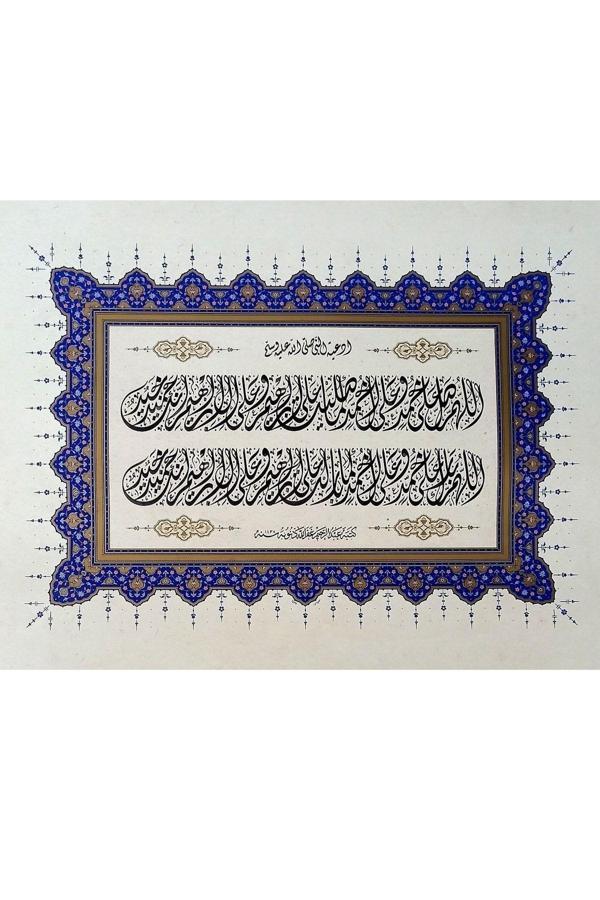 ادعية النبي صلى الله عليه وسلم
اللهم صل على محمد وعلى آل محمد كما صليت على إبراهيم وعلى آل إبراهيم إنك حميد مجيد
اللهم بارك على محمد وعلى آل محمد كما باركت على إبراهيم وعلى آل إبراهيم إنك حميد مجيد
كتبه عبد الرحيم غفر الله ذنوبه سنة